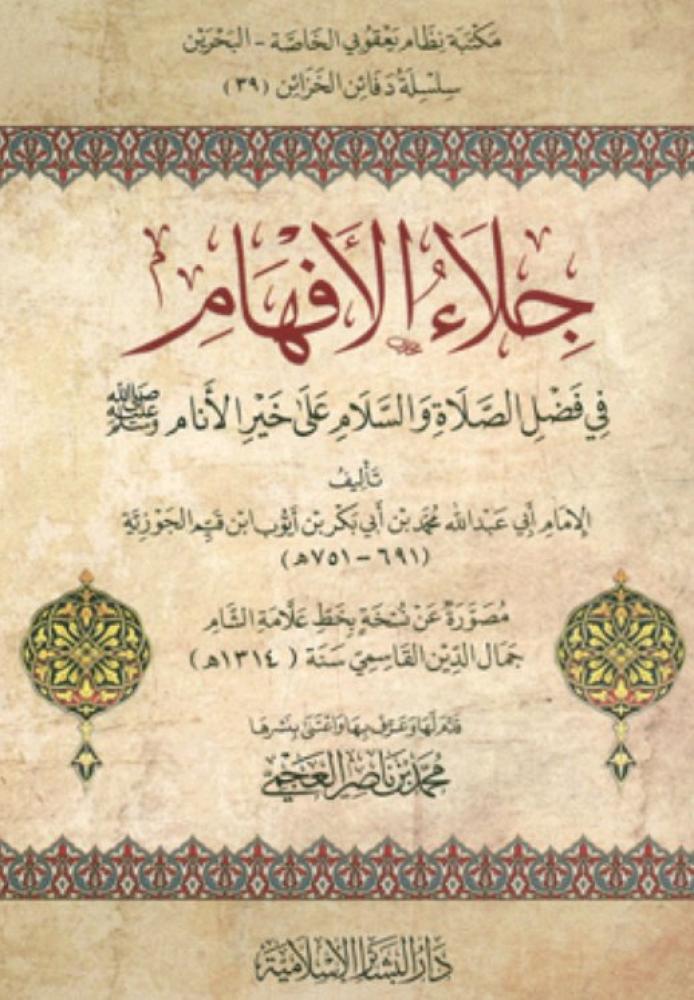 مَكتبَة نِظَام يَعقوبي الخاصَّة - البَحرَين
سِلسِلَةُ دَفَائِن الخَزَائِن (٣٩)
جِلَاءُ الأَفْهَامِ
فِي فَضْلِ الصَّلَاةِ وَالسَّلَامِ عَلَى خَيْرِ الأَنَام ﷺ
تَأليفُ
الإمَامِ أبي عَبْدالله مُحَمَّد بن أبي بَكْر بن أيّوب ابن قَيِّم الجَوْزِيَّة
(٦٩١ - ٧٥١هـ)
مُصَوَّرَةٌ عَنْ نُسْخَةٍ بِخَطِّ عَلَّامَةِ الشَّام
جَمَال الدِّين القَاسِمِيّ سَنَة (١٣١٤هـ)
قَدَّمَ لَهَا وَعَرَّفَ بِهَا وَاعْتَنَى بِنَشرِهَا
مُحَمَّد بن نَاصِر العَجْمِي
دَارُ البَشَائِر الإِسْلَامِيَّة